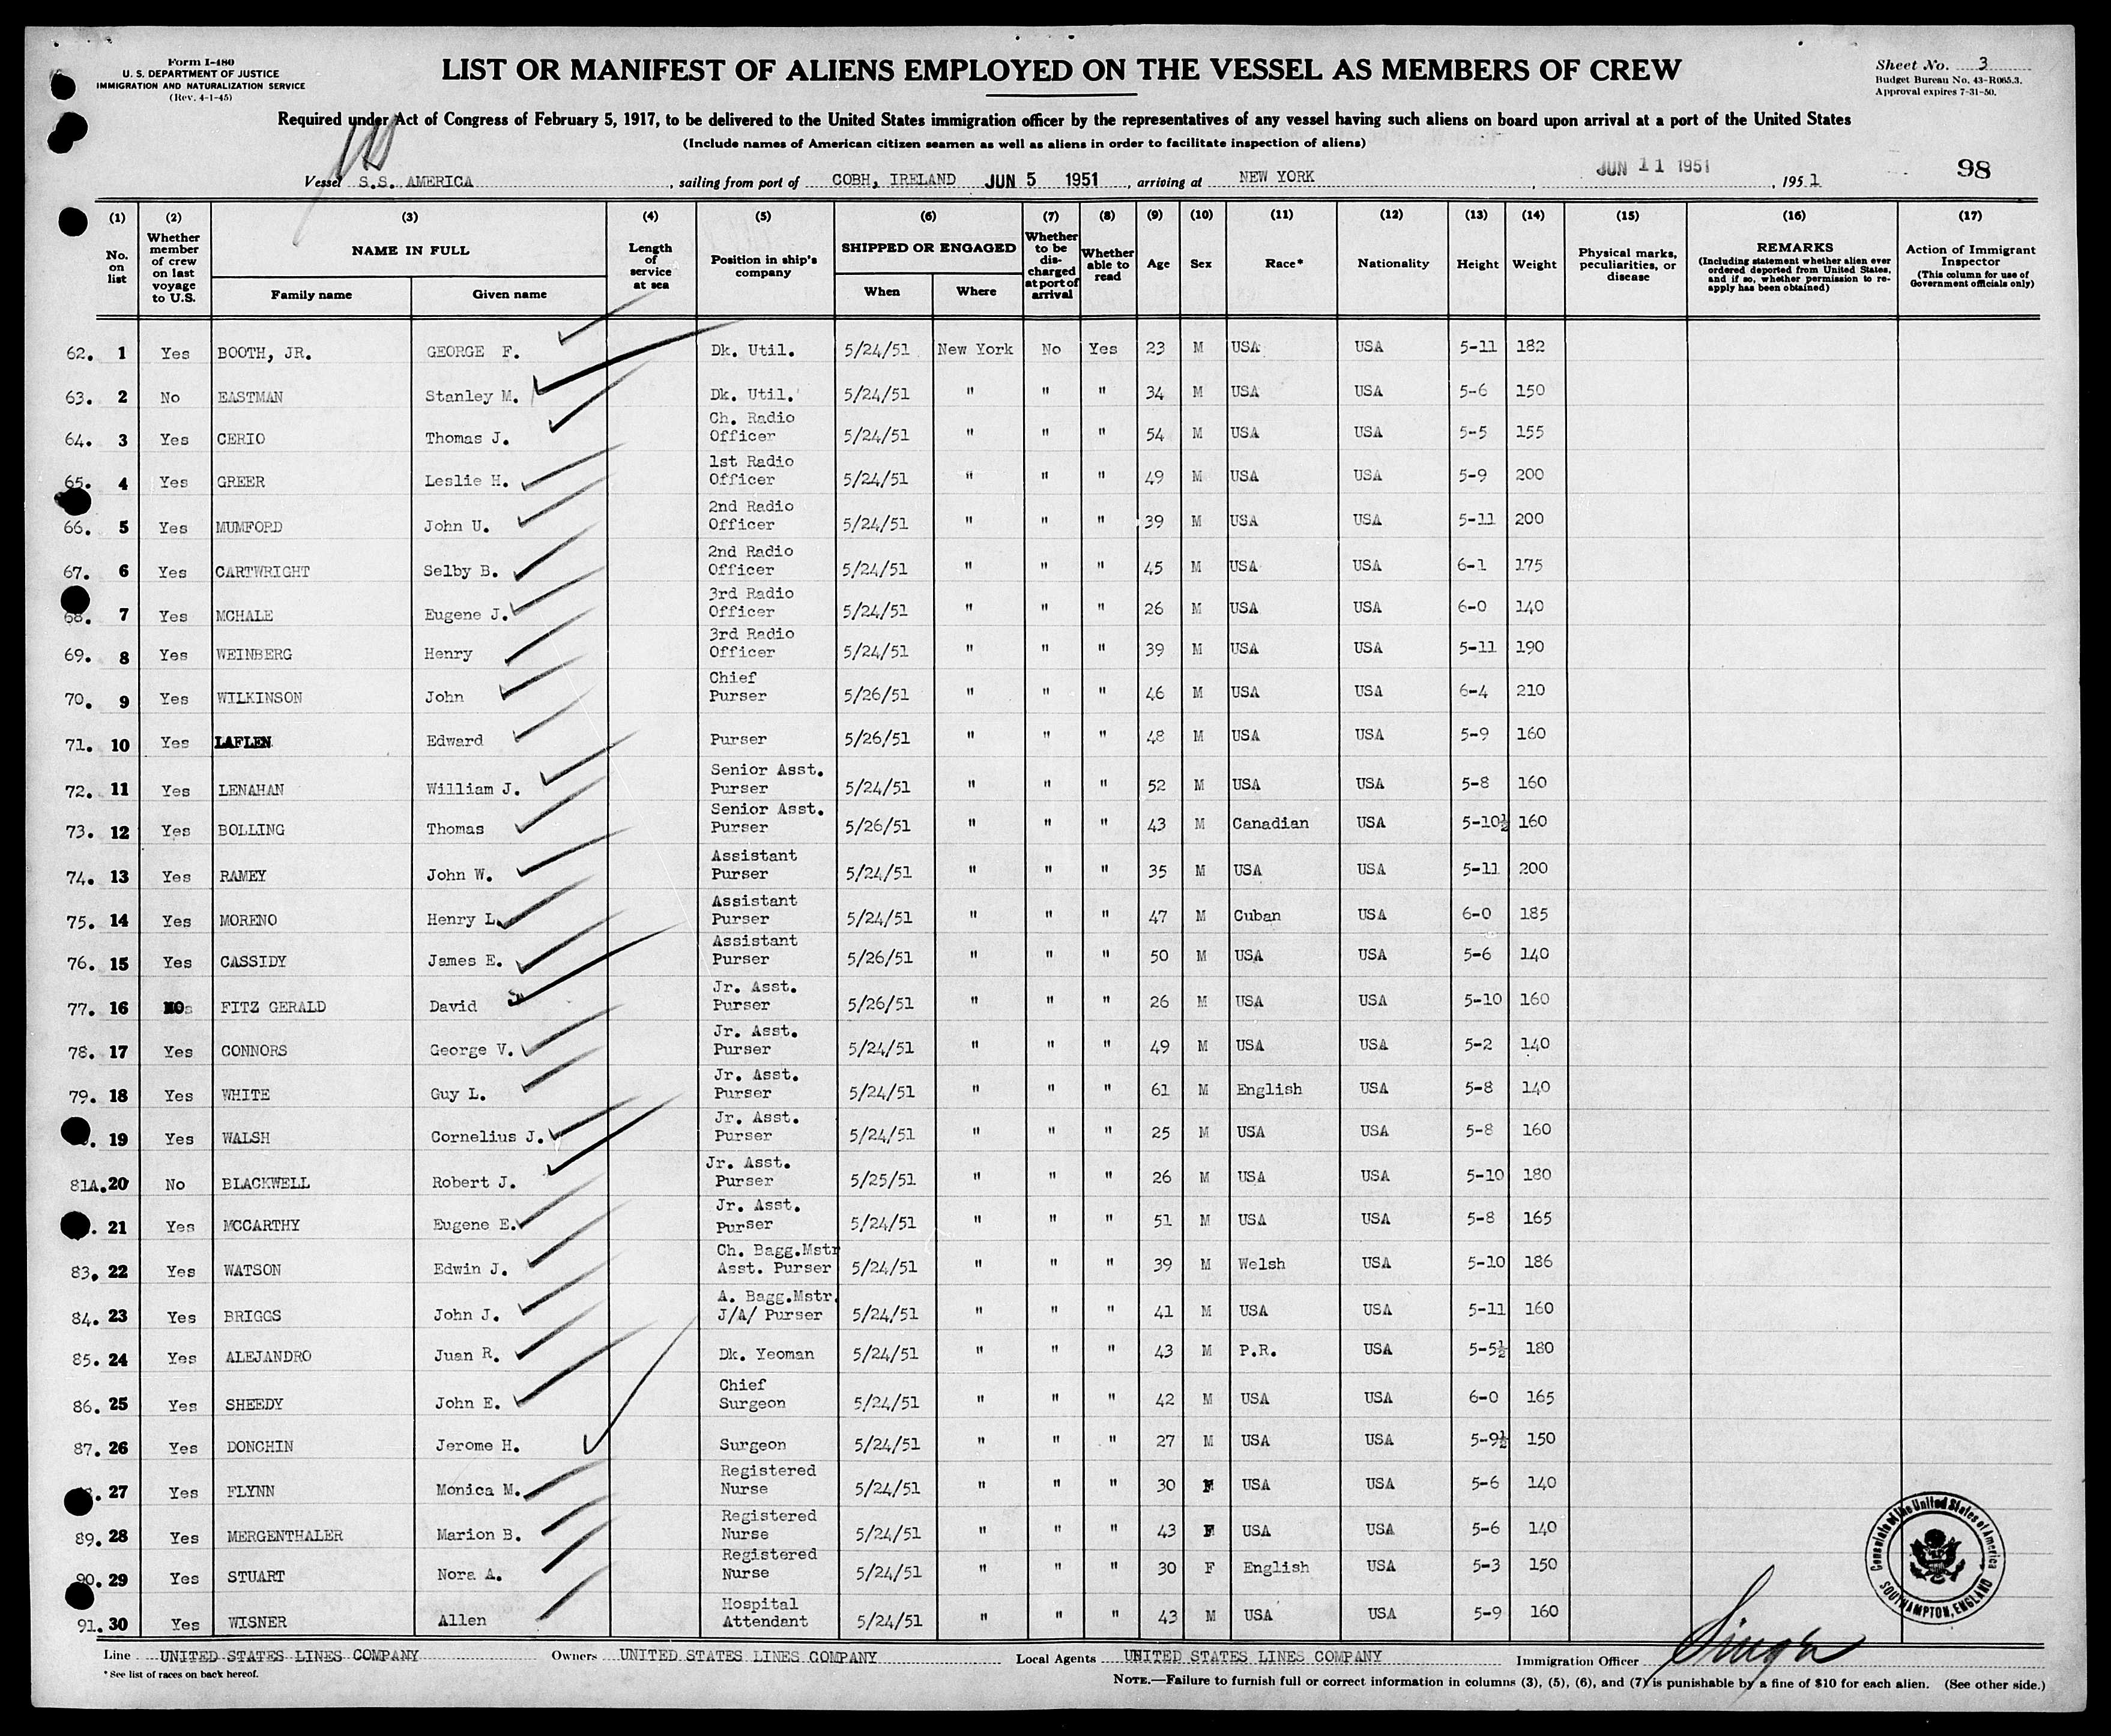 Form I-480
U. S. DEPARTMENT OF JUSTICE
IMMIGRATION AND NATURALIZATION SERVICE
(Rev. 4-1-45)
LIST OR MANIFEST OF ALIENS EMPLOYED ON THE VESSEL AS MEMBERS OF CREW
Sheet No. 3
Budget Bureau No. 43-R065.3.
Approval expires 7-31-50.
Required under Act of Congress of February 5, 1917, to be delivered to the United States immigration officer by the representatives of any vessel having such aliens on board upon arrival at a port of the United States
(Include names of American citizen seamen as well as aliens in order to facilitate inspection of aliens)
Vessel S.S. AMERICA, sailing from port of COBH, IRELAND JUN 5 1951, arriving at NEW YORK, JUN 11 1951, 1951 98
(1) (2) (3) (4) (5) (6) (7) (8) (9) (10) (11) (12) (13) (14) (15) (16) (17)
No. on list
Whether member of crew on last voyage to U.S.
NAME IN FULL
Family name
Given name
Length of service at sea
Position in ship's company
SHIPPED OR ENGAGED
When
Where
Whether to be discharged at port of arrival
Whether able to read
Age
Sex
Race*
Nationality
Height
Weight
Physical marks, peculiarities, or disease
REMARKS
(Including statement whether alien ever ordered deported from United States, and if so, whether permission to re-apply has been obtained)
Action of Immigrant Inspector
(This column for use of Government officials only)
62. 1 Yes BOOTH, JR. GEORGE F. Dk. Util. 5/24/51 New York No Yes 23 M USA USA 5-11 182
63. 2 No EASTMAN Stanley M. Dk. Util. 5/24/51 " " " 34 M USA USA 5-6 150
64. 3 Yes CERIO Thomas J. Ch. Radio Officer 5/24/51 " " " 54 M USA USA 5-5 155
65. 4 Yes GREER Leslie H. 1st Radio Officer 5/24/51 " " " 49 M USA USA 5-9 200
66. 5 Yes MUMFORD John U. 2nd Radio Officer 5/24/51 " " " 39 M USA USA 5-11 200
67. 6 Yes CARTWRIGHT Selby B. 2nd Radio Officer 5/24/51 " " " 45 M USA USA 6-1 175
68. 7 Yes MCHALE Eugene J. 3rd Radio Officer 5/24/51 " " " 26 M USA USA 6-0 140
69. 8 Yes WEINBERG Henry 3rd Radio Officer 5/24/51 " " " 39 M USA USA 5-11 190
70. 9 Yes WILKINSON John Chief Purser 5/26/51 " " " 46 M USA USA 6-4 210
71. 10 Yes LAFLEN Edward Purser 5/26/51 " " " 48 M USA USA 5-9 160
72. 11 Yes LENAHAN William J. Senior Asst. Purser 5/24/51 " " " 52 M USA USA 5-8 160
73. 12 Yes BOLLING Thomas Senior Asst. Purser 5/26/51 " " " 43 M Canadian USA 5-10½ 160
74. 13 Yes RAMEY John W. Assistant Purser 5/24/51 " " " 35 M USA USA 5-11 200
75. 14 Yes MORENO Henry L. Assistant Purser 5/24/51 " " " 47 M Cuban USA 6-0 185
76. 15 Yes CASSIDY James E. Assistant Purser 5/26/51 " " " 50 M USA USA 5-6 140
77. 16 NO FITZ GERALD David Jr. Asst. Purser 5/26/51 " " " 26 M USA USA 5-10 160
78. 17 Yes CONNORS George V. Jr. Asst. Purser 5/24/51 " " " 49 M USA USA 5-2 140
79. 18 Yes WHITE Guy L. Jr. Asst. Purser 5/24/51 " " " 61 M English USA 5-8 140
19 Yes WALSH Cornelius J. Jr. Asst. Purser 5/24/51 " " " 25 M USA USA 5-8 160
81A. 20 No BLACKWELL Robert J. Jr. Asst. Purser 5/25/51 " " " 26 M USA USA 5-10 180
21 Yes MCCARTHY Eugene E. Jr. Asst. Purser 5/24/51 " " " 51 M USA USA 5-8 165
83. 22 Yes WATSON Edwin J. Ch. Bagg.Mstr Asst. Purser 5/24/51 " " " 39 M Welsh USA 5-10 186
84. 23 Yes BRIGGS John J. A. Bagg.Mstr. J/A/ Purser 5/24/51 " " " 41 M USA USA 5-11 160
85. 24 Yes ALEJANDRO Juan R. Dk. Yeoman 5/24/51 " " " 43 M P.R. USA 5-5½ 180
86. 25 Yes SHEEDY John E. Chief Surgeon 5/24/51 " " " 42 M USA USA 6-0 165
87. 26 Yes DONCHIN Jerome H. Surgeon 5/24/51 " " " 27 M USA USA 5-9½ 150
27 Yes FLYNN Monica M. Registered Nurse 5/24/51 " " " 30 F USA USA 5-6 140
89. 28 Yes MERGENTHALER Marion B. Registered Nurse 5/24/51 " " " 43 F USA USA 5-6 140
90. 29 Yes STUART Nora A. Registered Nurse 5/24/51 " " " 30 F English USA 5-3 150
91. 30 Yes WISNER Allen Hospital Attendant 5/24/51 " " " 43 M USA USA 5-9 160
Consulate of the United States of America
SOUTHAMPTON, ENGLAND
Line UNITED STATES LINES COMPANY Owners UNITED STATES LINES COMPANY Local Agents UNITED STATES LINES COMPANY Immigration Officer
* See list of races on back hereof.
NOTE.—Failure to furnish full or correct information in columns (3), (5), (6), and (7) is punishable by a fine of $10 for each alien. (See other side.)